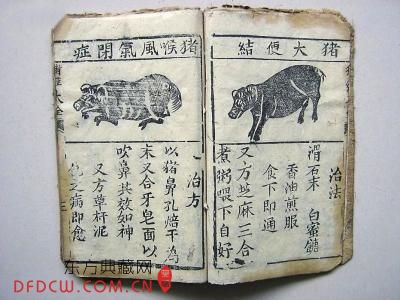 猪大便結
治法
滑石末 白蜜
香油煎服
食下即通
又方芝麻三合
煮粥喂下自好
猪喉風氣閉症
治方
以猪鼻孔焙干为
末又合牙皂面以
吹鼻其效如神
又方草杆泥
之病即愈
大全
东方典藏网
DFDCW.COM.CN